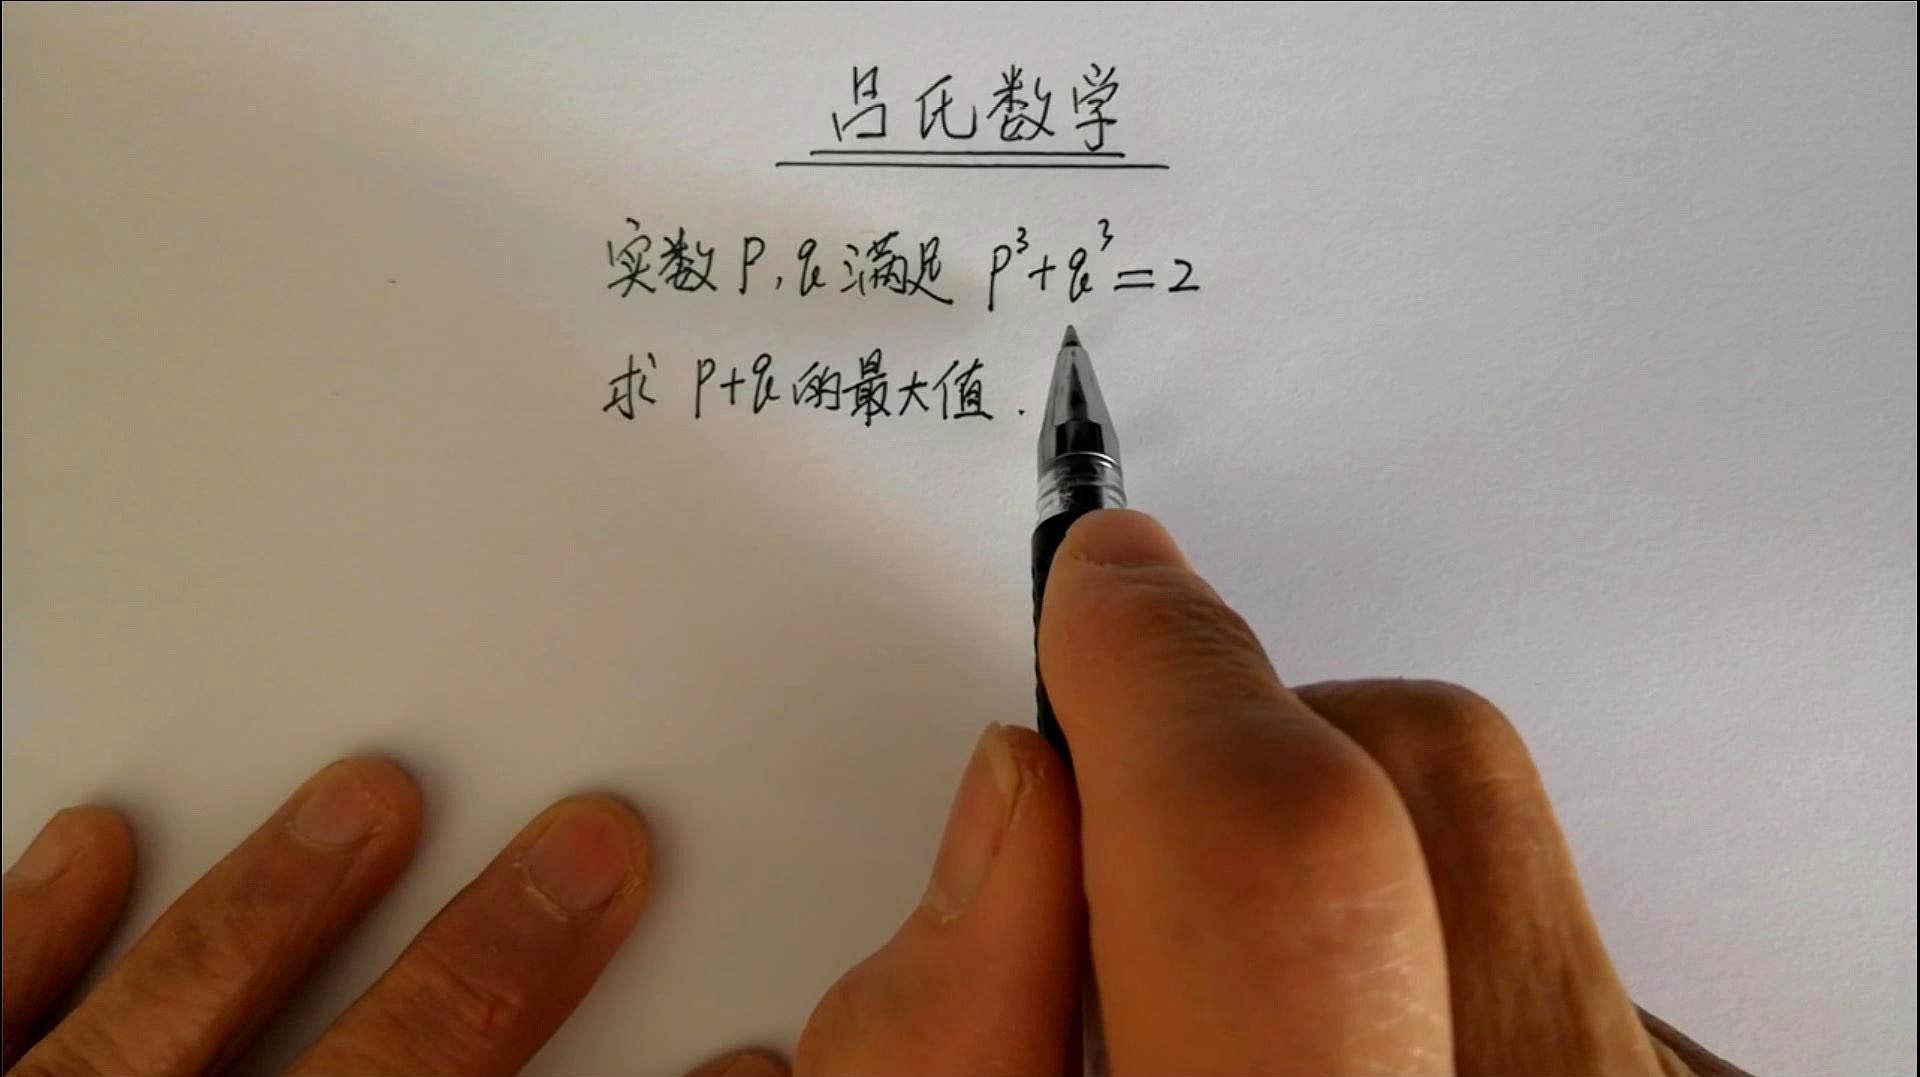 吕氏数学
实数p,q满足 p³+q³=2
求 p+q的最大值.